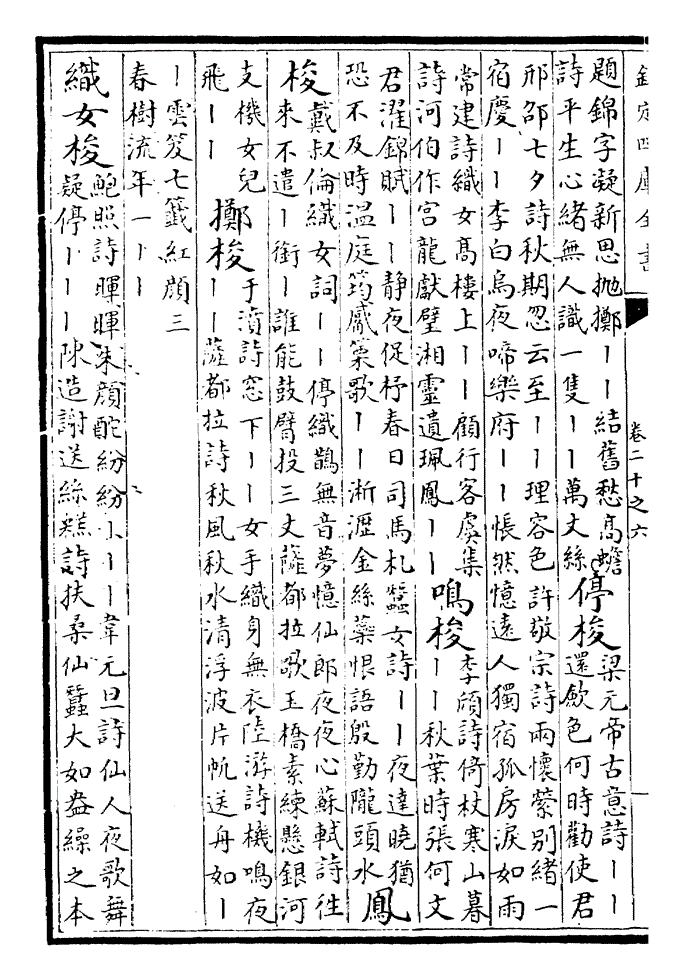 欽定四庫全書
卷二十之六
題錦字凝新思抛擲丨丨結舊愁高蟾
詩平生心緒無人識一隻丨丨萬丈絲
停梭
梁元帝古意詩丨丨
還斂色何時勸使君
邢邵七夕詩秋期忽云至丨丨理容色許敬宗詩兩懷縈別緒一
宿慶丨丨李白烏夜啼樂府丨丨悵然憶遠人獨宿孤房淚如雨
常建詩織女高樓上丨丨顧行客虞集
詩河伯作宮龍獻璧湘靈遺珮鳳丨丨
鳴梭
李頎詩倚杖寒山暮
丨丨秋葉時張何文
君濯錦賦丨丨静夜促杼春日司馬札蠶女詩丨丨夜達曉猶
恐不及時温庭筠觱篥歌丨丨淅瀝金絲蘂恨語殷勤隴頭水
鳳
梭
戴叔倫織女詞丨丨停織鵲無音夢憶仙郎夜夜心蘇軾詩往
來不遣丨銜丨誰能鼓臂投三丈薩都拉歌玉橋素練懸銀河
支機女兒
飛丨丨
擲梭
于濆詩窓下丨丨女手織身無衣陸游詩機鳴夜
丨丨薩都拉詩秋風秋水清浮波片帆送舟如丨
丨雲笈七籤紅顔三
春樹流年一丨丨
織女梭
鮑照詩暉暉朱顔酡紛紛小丨丨韋元旦詩仙人夜歌舞
疑停丨丨丨陳造謝送絲糕詩扶桑仙蠶大如盎繰之本